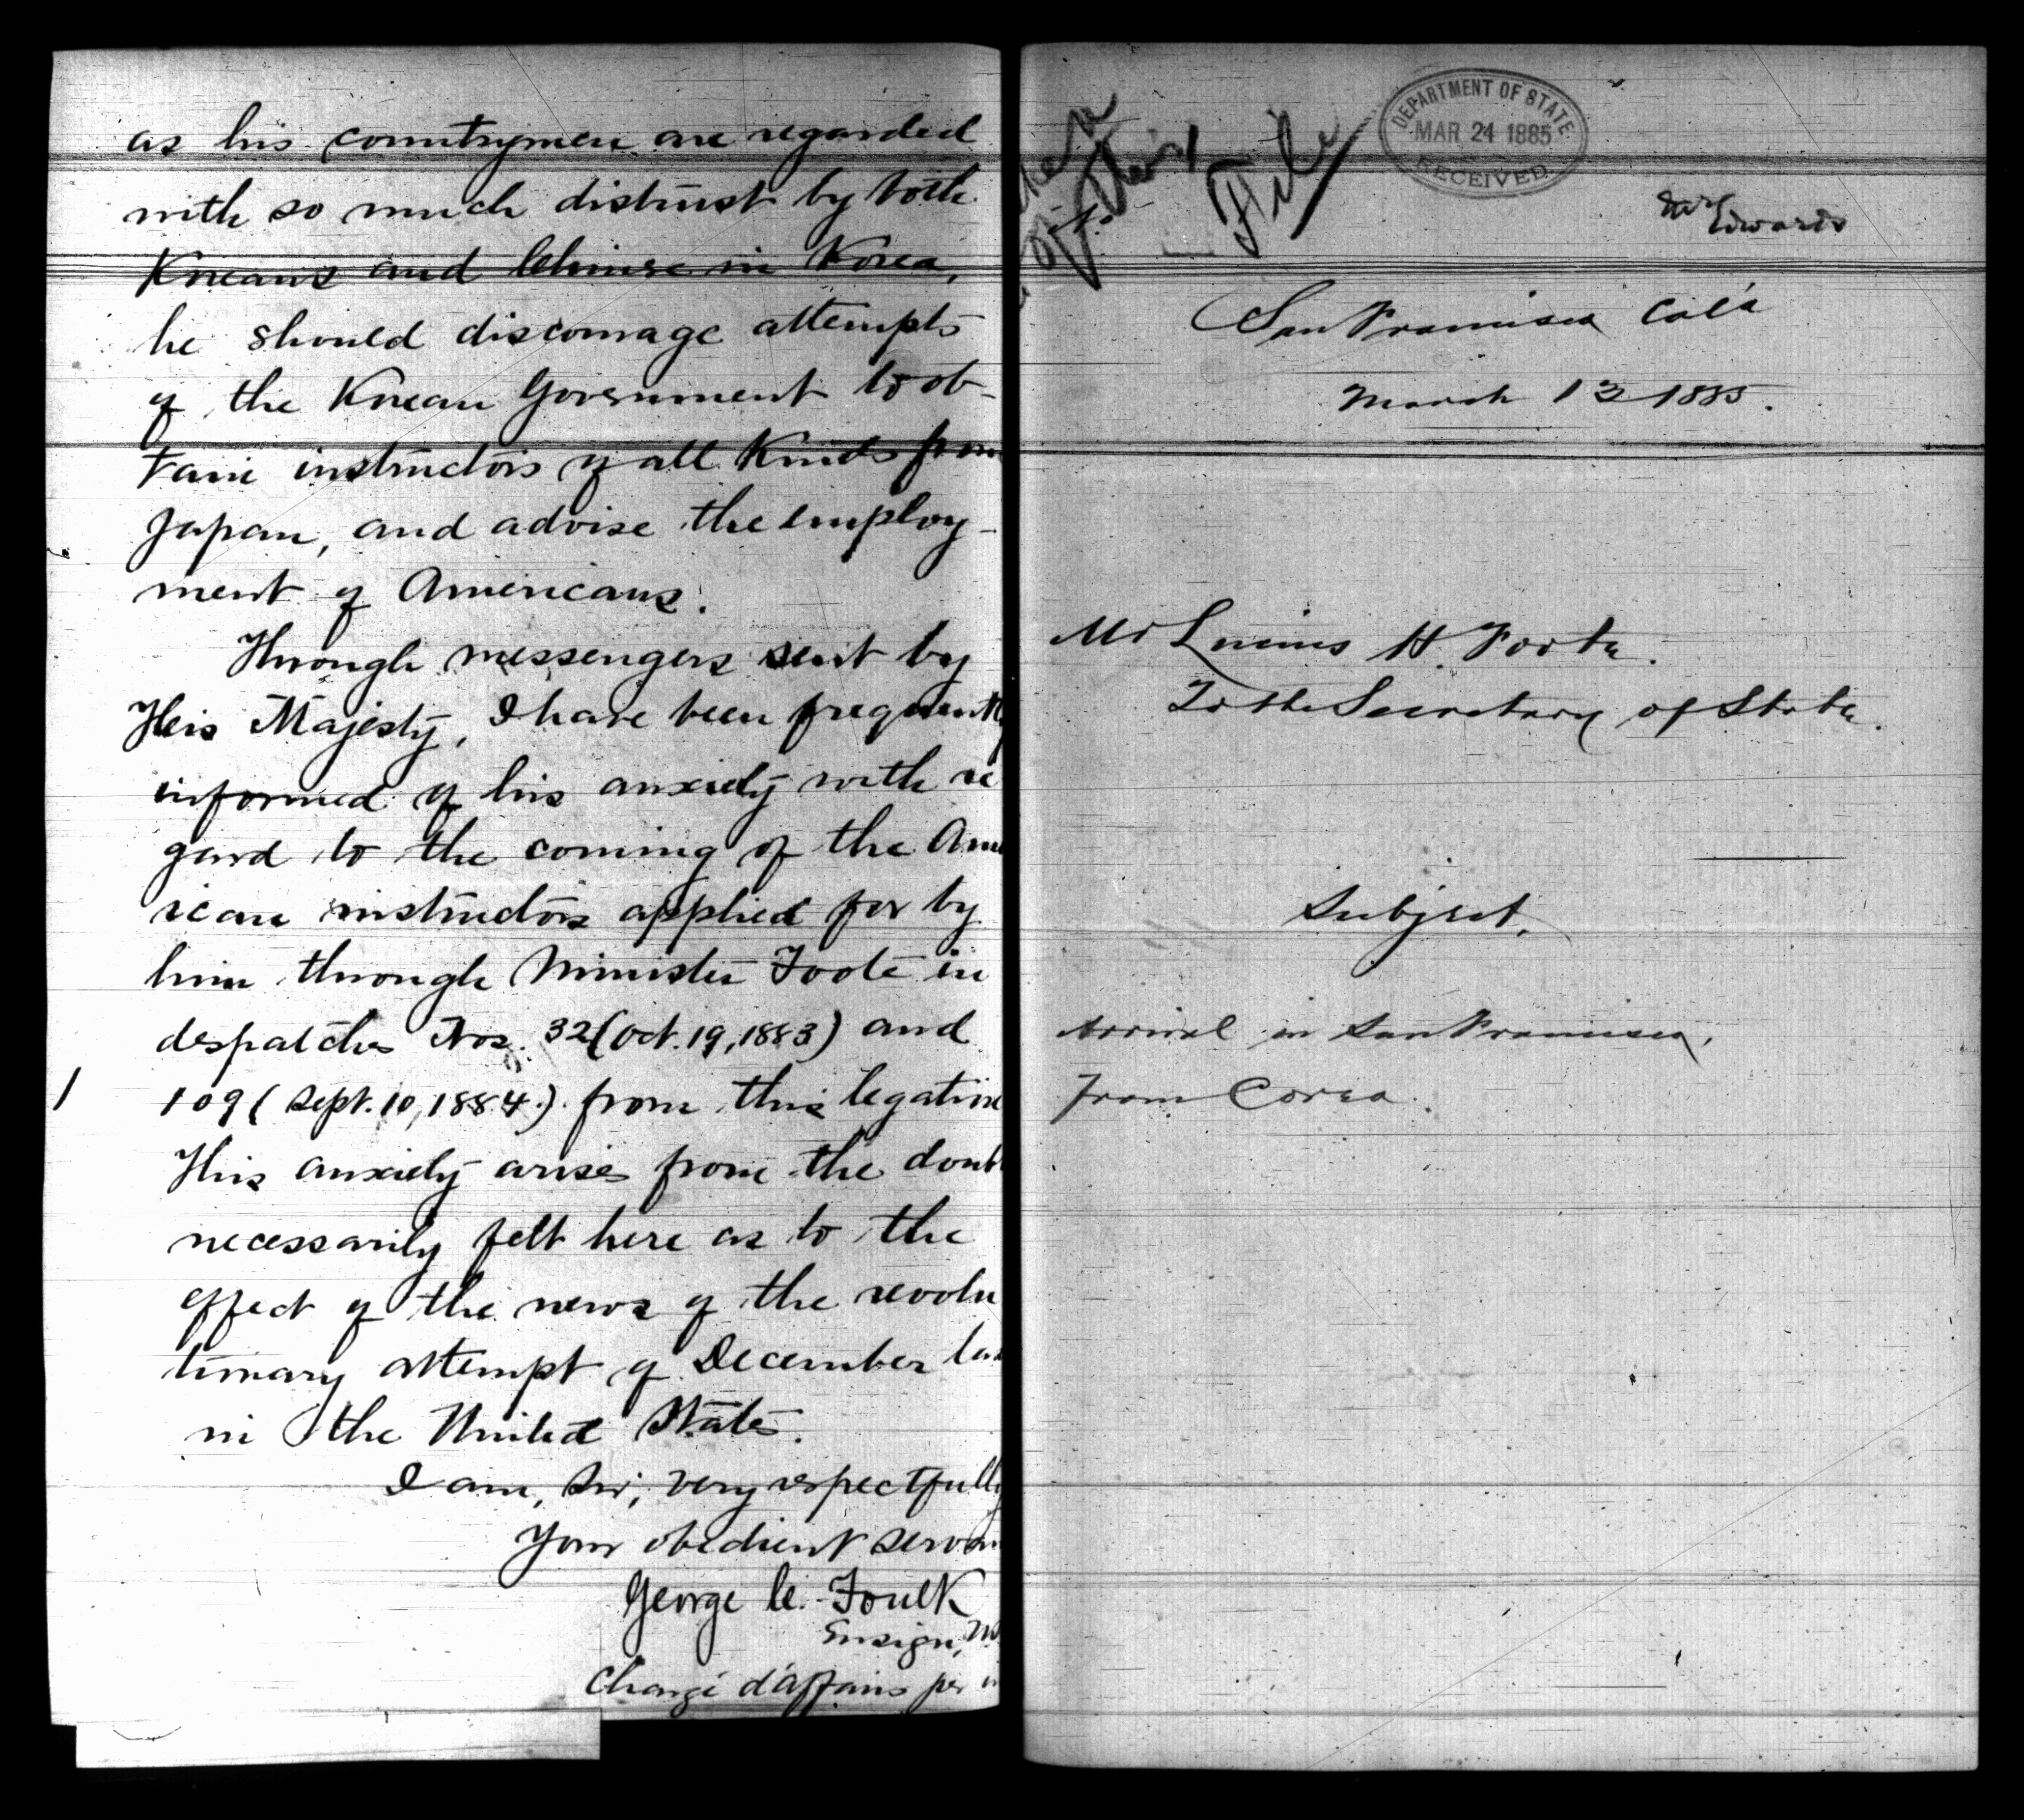 as his countrymen are regarded
with so much distrust by both
Koreans and Chinese in Korea,
he should discourage attempts
of the Korean Government to ob-
tain instructors of all kinds from
Japan, and advise the employ-
ment of Americans.
Through messengers sent by
His Majesty, I have been frequently
informed of his anxiety with re
gard to the coming of the Ame
rican instructors applied for by
him through Minister Foote in
despatches Nos. 32 (Oct. 19, 1883) and
109 (Sept. 10, 1884.) from this legation
This anxiety arises from the doubt
necessarily felt here as to the
effect of the news of the revolu
tionary attempt of December las
in the United States.
I am, Sir, very respectfully
Your obedient servan
George C. Foulk
Ensign, U.S.
Chargé d'affaires per in
File
DEPARTMENT OF STATE
MAR 24 1885
RECEIVED
Mr Edwards
San Francisco Cal'a
March 13 1885.
Mr Lucius H. Foote.
To the Secretary of State.
Subject.
Arrival in San Francisco,
from Corea.